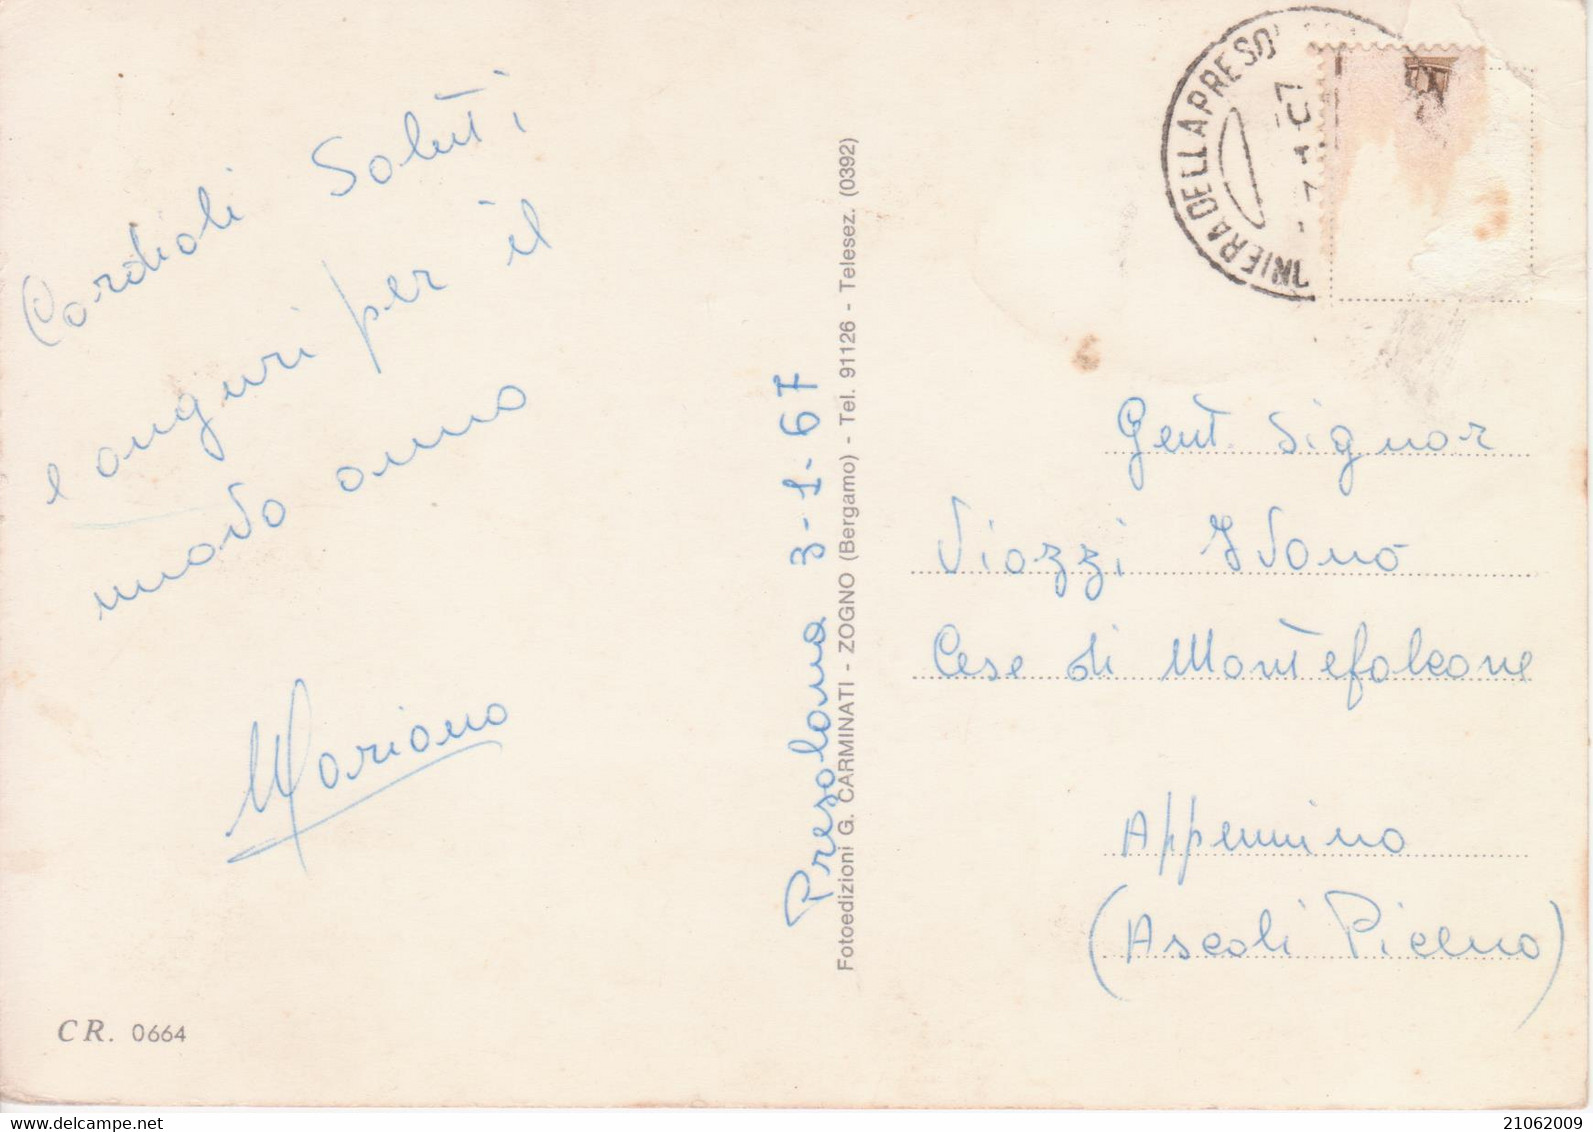 Cordiali Saluti
e auguri per il
nuovo anno
Mariano
CR. 0664
Presolana 3-1-67
Fotoedizioni G. CARMINATI - ZOGNO (Bergamo) - Tel. 91126 - Telesez. (0392)
NIERA DELLA PRESO
Gent. Signor
Viozzi Ivano
Cese di Montefalcone
Appennino
(Ascoli Piceno)
delcampe.net
21062009